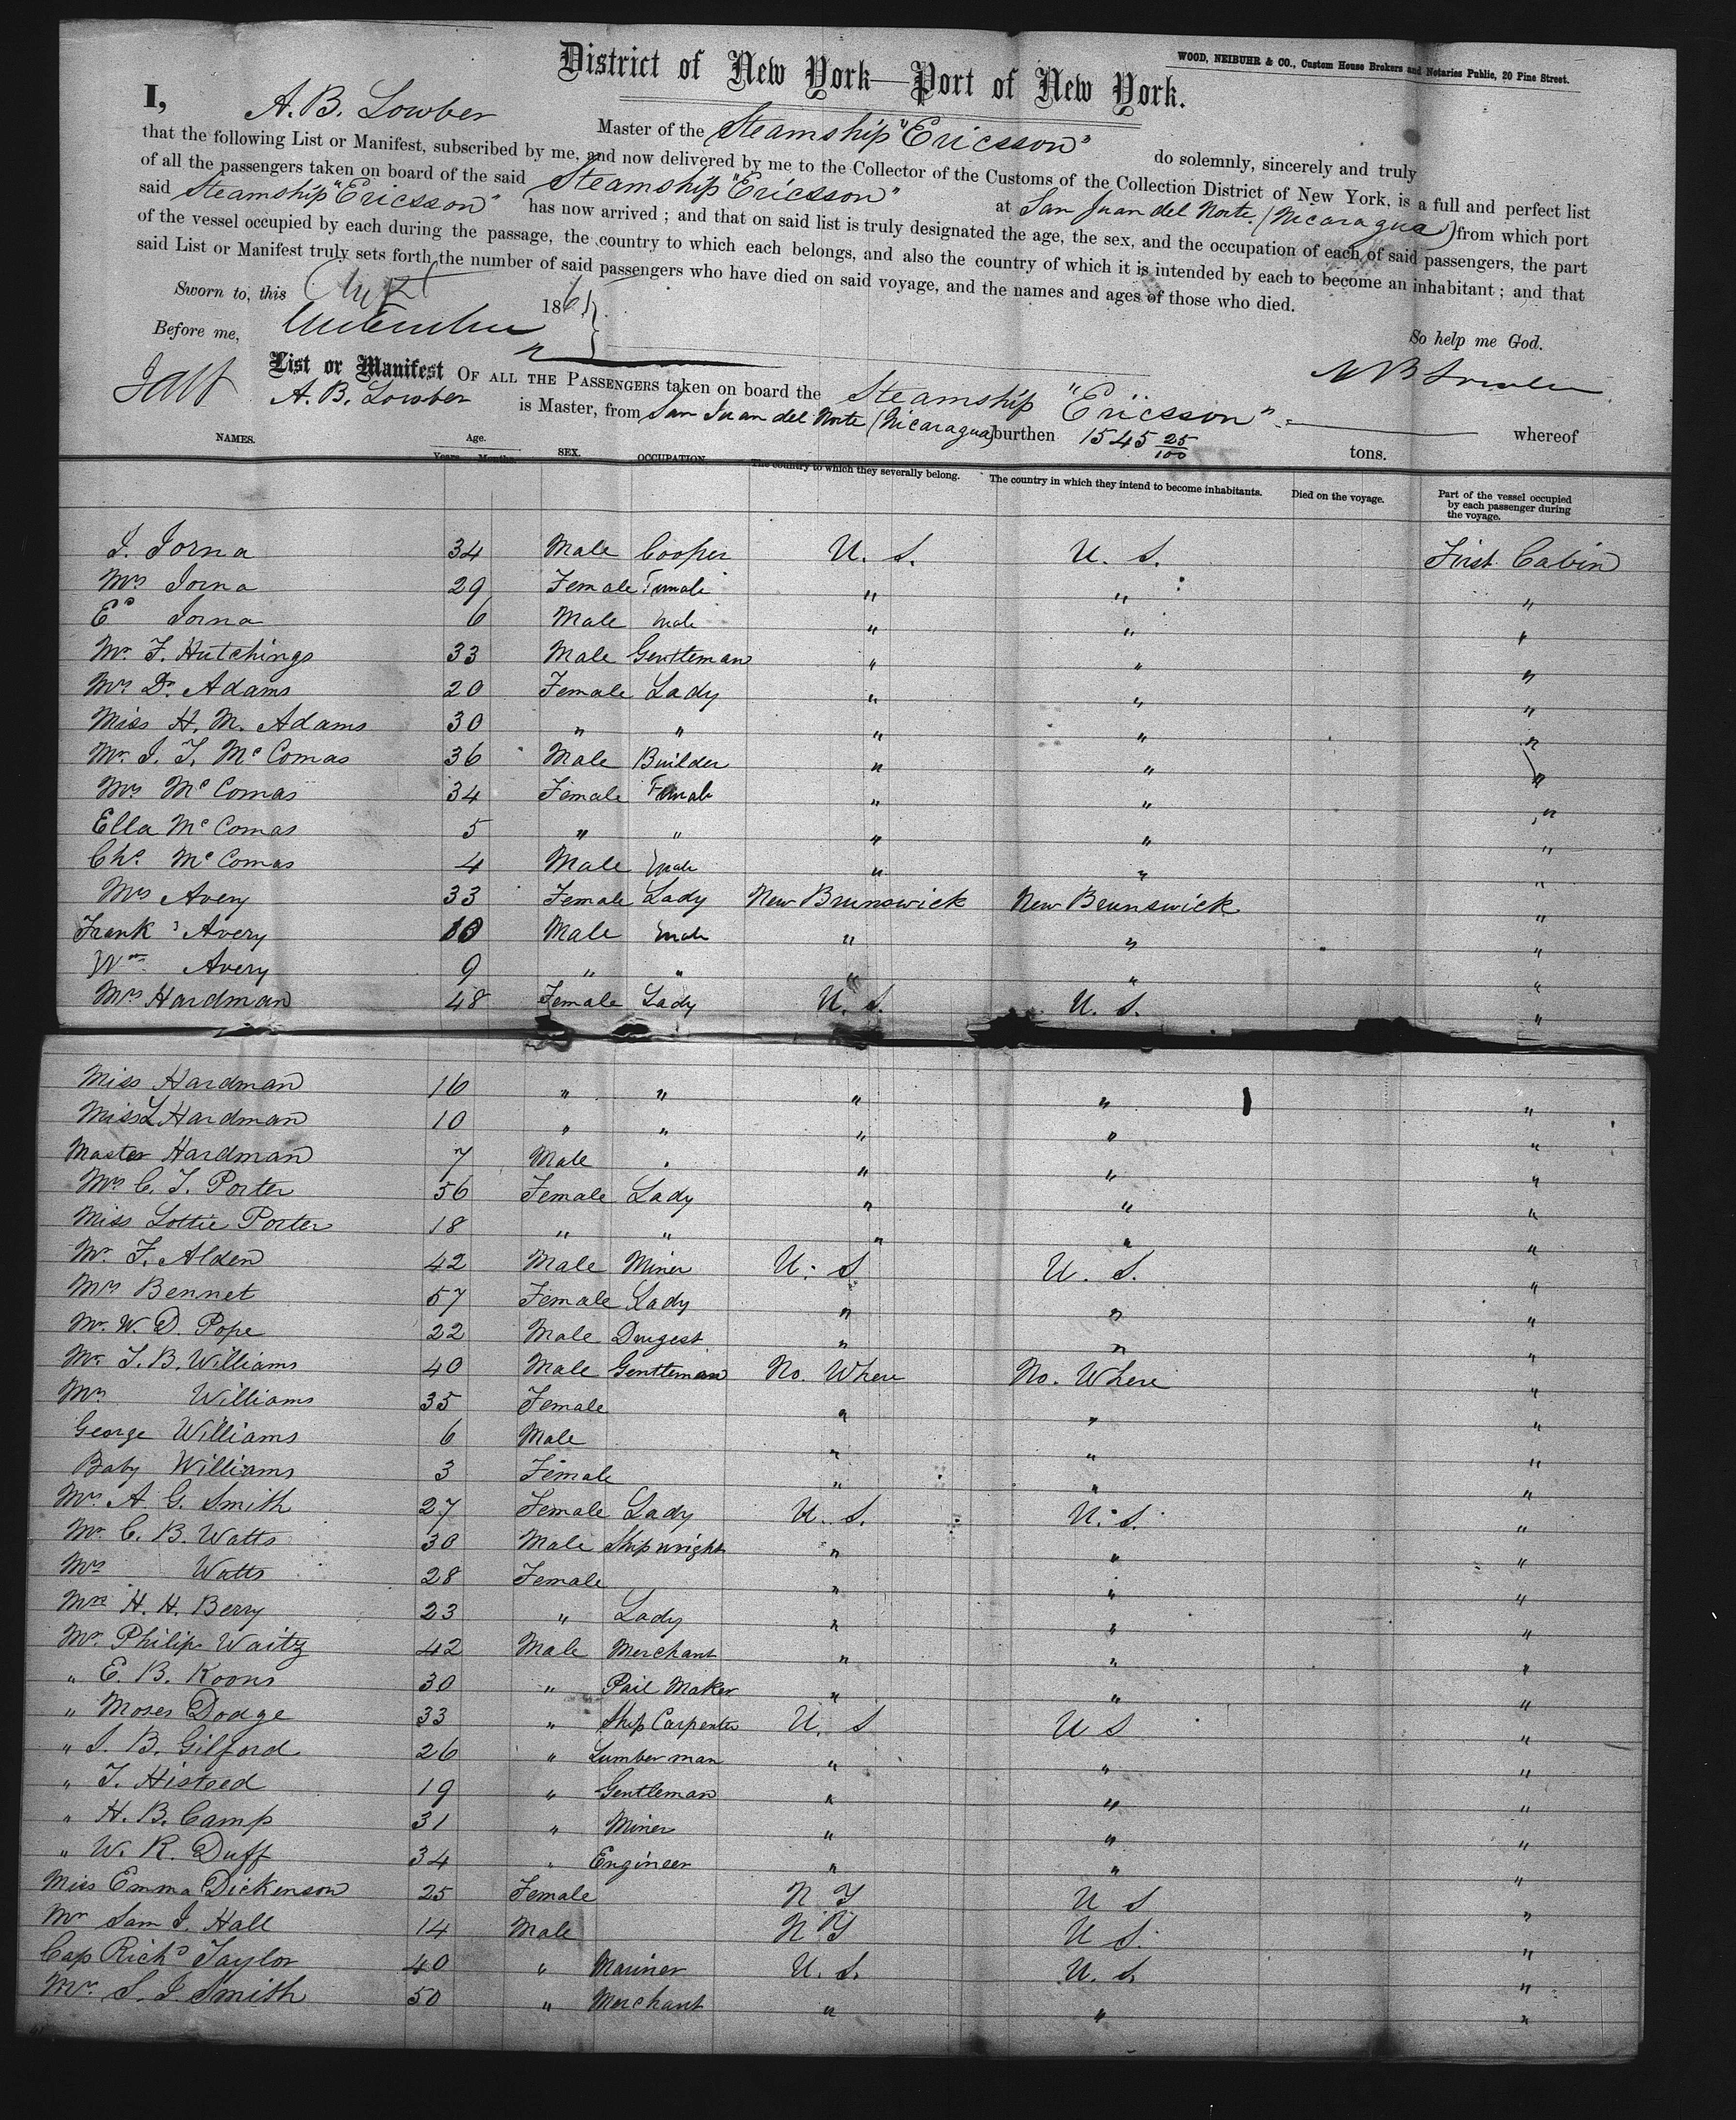 WOOD, NEIBUHR & CO., Custom House Brokers and Notaries Public, 20 Pine Street.
District of New York—Port of New York.
I, A. B. Lowber Master of the Steamship "Ericsson" do solemnly, sincerely and truly
that the following List or Manifest, subscribed by me, and now delivered by me to the Collector of the Customs of the Collection District of New York, is a full and perfect list
of all the passengers taken on board of the said Steamship "Ericsson" at San Juan del Norte. (Nicaragua) from which port
said Steamship "Ericsson" has now arrived; and that on said list is truly designated the age, the sex, and the occupation of each of said passengers, the part
of the vessel occupied by each during the passage, the country to which each belongs, and also the country of which it is intended by each to become an inhabitant; and that
said List or Manifest truly sets forth the number of said passengers who have died on said voyage, and the names and ages of those who died.
Sworn to, this 186
So help me God.
Before me,
List or Manifest OF ALL THE PASSENGERS taken on board the Steamship "Ericsson" whereof
A. B. Lowber is Master, from San Juan del Norte (Nicaragua) burthen 1545 25/100 tons.
NAMES. Age. Years Months. SEX. OCCUPATION The country to which they severally belong. The country in which they intend to become inhabitants. Died on the voyage. Part of the vessel occupied by each passenger during the voyage.
J. Jorna 34 Male Cooper U. S. U. S. First Cabin
Mrs Jorna 29 Female Female " " "
Ed Jorna 6 Male Male " " "
Mr. F. Hutchings 33 Male Gentleman " " "
Mrs Dr. Adams 20 Female Lady " " "
Miss H. M. Adams 30 " " " " "
Mr. J. T. McComas 36 Male Builder " " "
Mrs McComas 34 Female Female " " "
Ella McComas 5 " " " " "
Chs. McComas 4 Male Male " " "
Mrs Avery 33 Female Lady New Brunswick New Brunswick "
Frank Avery 10 Male Male " " "
Wm Avery 9 " " " " "
Mrs Hardman 48 Female Lady U. S. U. S. "
Miss Hardman 16 " " " " "
Miss L Hardman 10 " " " " "
Master Hardman 7 Male " " " "
Mrs C. T. Porter 56 Female Lady " " "
Miss Lottie Porter 18 " " " " "
Mr. F. Alden 42 Male Miner U. S. U. S. "
Mrs Bennet 57 Female Lady " " "
Mr. W. D. Pope 22 Male Drugest " " "
Mr. T. B. Williams 40 Male Gentleman No. Where No. Where "
Mrs Williams 35 Female " " "
George Williams 6 Male " " "
Baby Williams 3 Female " " "
Mrs. A. G. Smith 27 Female Lady U. S. U. S. "
Mr. C. B. Watts 30 Male Ship wright " " "
Mrs Watts 28 Female " " "
Mrs H. H. Berry 23 " Lady " " "
Mr. Philip Waitz 42 Male Merchant " " "
" E. B. Koons 30 " Pail Maker " " "
" Moses Dodge 33 " Ship Carpenter U. S U S "
" S. B. Gilford 26 " Lumber man " " "
" T. Histeed 19 " Gentleman " " "
" H. B. Camp 31 " Miner " " "
" W. R. Duff 34 " Engineer " " "
Miss Emma Dickenson 25 Female N Y U S "
Mr Sam J. Hall 14 Male N Y U S. "
Cap Richd Taylor 40 " Mariner U. S. U. S. "
Mr. S. J. Smith 50 " Merchant " " "